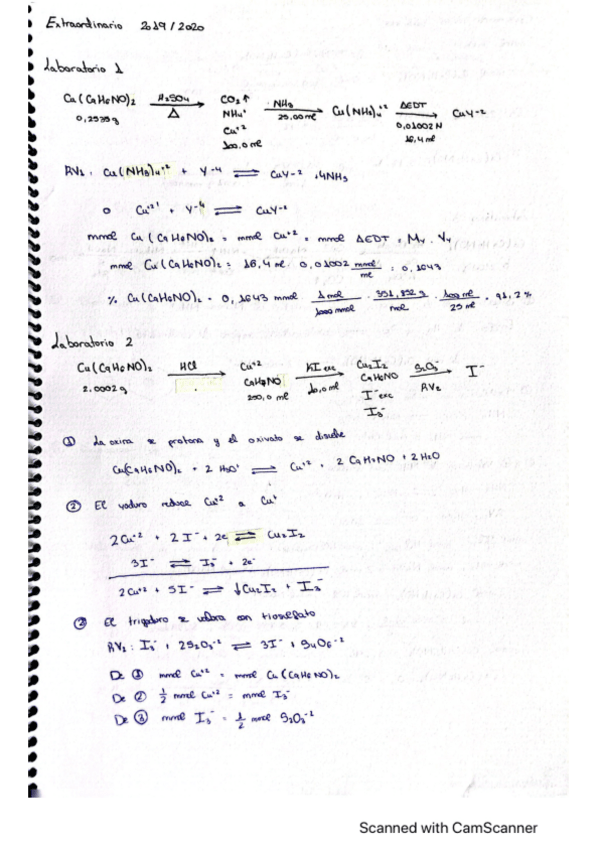 Extraordinario 2019/2020
Laboratorio 1
Cu(C9H6NO)2 H2SO4 Δ CO2↑ NH3 Cu(NH3)4+2 AEDT CuY-2
0,2535g NH4+ 25,00 ml 0,01002 N
Cu+2 16,4 ml
100,0 ml
RV1: Cu(NH3)4+2 + Y-4 ⇌ CuY-2 + 4NH3
o Cu+2 + Y-4 ⇌ CuY-2
mmol Cu(C9H6NO)2 = mmol Cu+2 = mmol AEDT = My . Vy
mmol Cu(C9H6NO)2 = 16,4 ml . 0,01002 mmol/ml = 0,1643
% Cu(C9H6NO)2 = 0,1643 mmol 1 mol/1000 mmol . 351,852 g/mol . 100 ml/25 ml = 91,2 %
Laboratorio 2
Cu(C9H6NO)2 HCl Cu+2 KI exc Cu2I2 S2O3= I-
2,0002g C9H7NO 10,0 ml C9H6NO RV2
250,0 ml I- exc
I3-
① La oxina se protona y el oxinato se disuelve
Cu(C9H6NO)2 + 2 H3O+ ⇌ Cu+2 + 2 C9H7NO + 2 H2O
② El yoduro reduce Cu+2 a Cu+
2 Cu+2 + 2 I- + 2e ⇌ Cu2I2
3I- ⇌ I3- + 2e-
2 Cu+2 + 5I- ⇌ ↓Cu2I2 + I3-
③ El triyoduro se valora con tiosulfato
RV2: I3- + 2S2O3-2 ⇌ 3I- + S4O6-2
De ① mmol Cu+2 = mmol Cu(C9H6NO)2
De ② 1/2 mmol Cu+2 = mmol I3-
De ③ mmol I3- = 1/2 mmol S2O3-2
Scanned with CamScanner